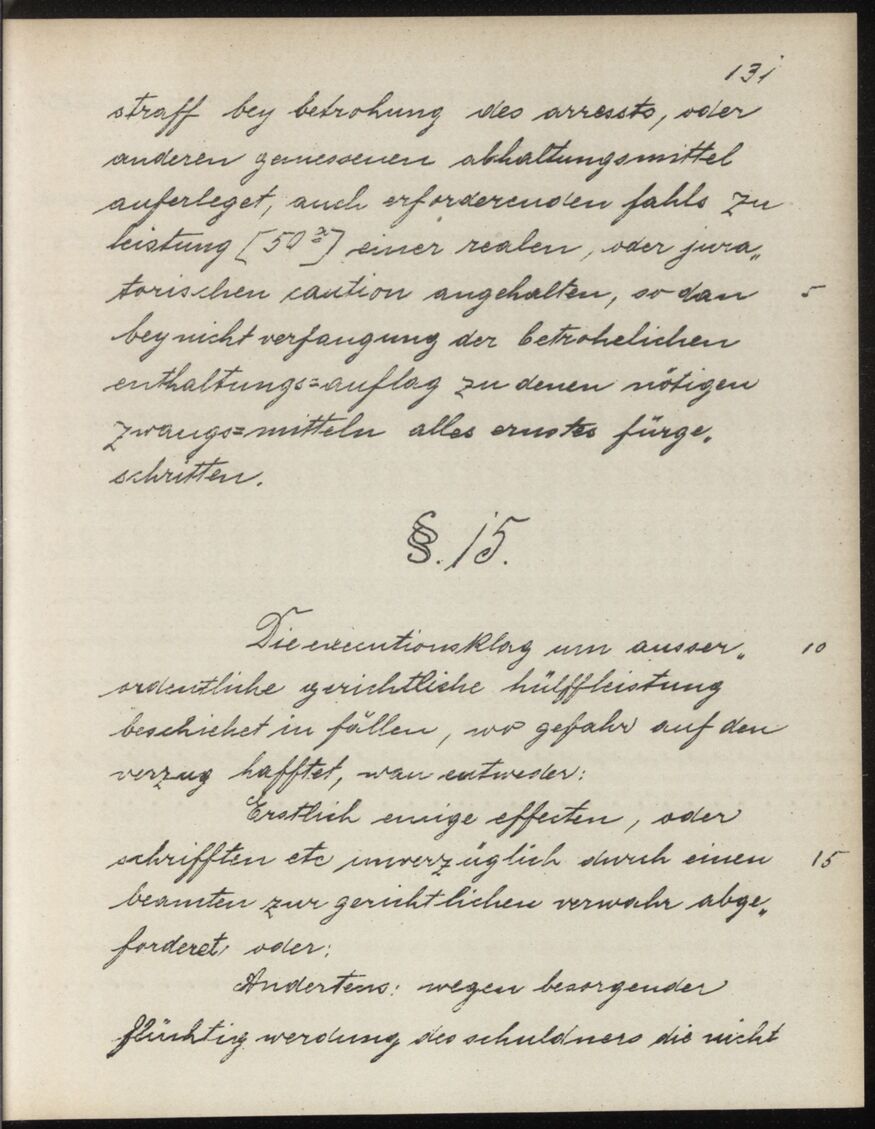 131
straff bey betrohung des arrests, oder
anderen gemessenen abhaltungsmittel
auferleget, auch erforderenden fahls zu
leistung [50 x] einer realen, oder jura„
torischen caution angehalten, so dan 5
bey nicht verfangung der betrohelichen
enthaltungs=auflag zu denen nötigen
zwangs=mitteln alles ernstes fürge„
schritten.
§. 15.
Die executionsklag um ausser„ 10
ordentliche gerichtliche hülffleistung
beschiehet in fällen, wo gefahr auf den
verzug hafftet, wan entweder:
Erstlich einige effecten, oder
schrifften etc unverzüglich durch einen 15
beamten zur gerichtlichen verwahr abge„
forderet, oder:
Andertens: wegen besorgender
flüchtig werdung des schuldners die nicht